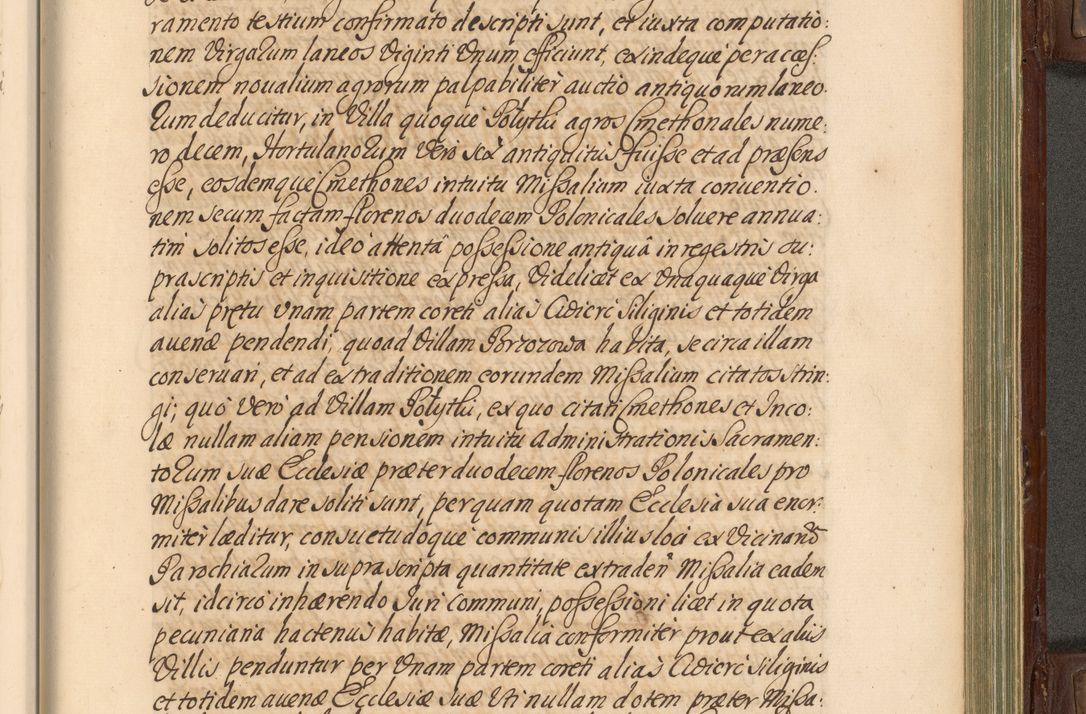 ramento testium confirmato descripti sunt, et iuxta computatio:
nem Virgarum laneos Viginti Unum efficiunt, exindeque per acces:
sionem noualium agrorum palpabiliter auctio antiquorum laneo:
rum deducitur, in Villa quoque Połytłu agros Cmethonales nume:
ro decem, Hortulanorum Vero sex antiquitus fuisse et ad præsens
esse, eosdemque Cmethones intuitu Missalium iuxta conuentio:
nem secum factam florenos duodecem Polonicales soluere annua:
tim solitos esse, ideo attentâ possessione antiquâ in regestris su:
prascriptis et inquisitione expressa, Videlicæt ex Unaquaque Virga
alias prętu Unam partem coreti alias Cwierc siliginis et totidem
auenæ pendendi, quoad Villam Porzozowa habita, se circa illam
conseruari, et ad extraditionem eorundem Missalium citatos strin:
gi; quo Vero ad Villam Połytłu, ex quo citati Cmethones et Inco:
læ nullam aliam pensionem intuitu Administrationis Sacramen:
torum suæ Ecclesiæ præter duodecem florenos Polonicales pro
Missalibus dare soliti sunt, per quam quotam Ecclesia sua enor:
miter læditur, consuetudoque communis illius loci ex Vicinand
Parochiarum in suprascripta quantitate extraden Missalia eadem
sit, idcirco inhærendo Juri Communi, possessioni licæt in quota
pecuniaria hactenus habitæ, Missalia conformiter prout ex aliis
Villis penduntur per Unam partem coreti alias Cwierc siliginis
et totidem auenæ Ecclesiæ suæ Uti nullam dotem præter Missa: